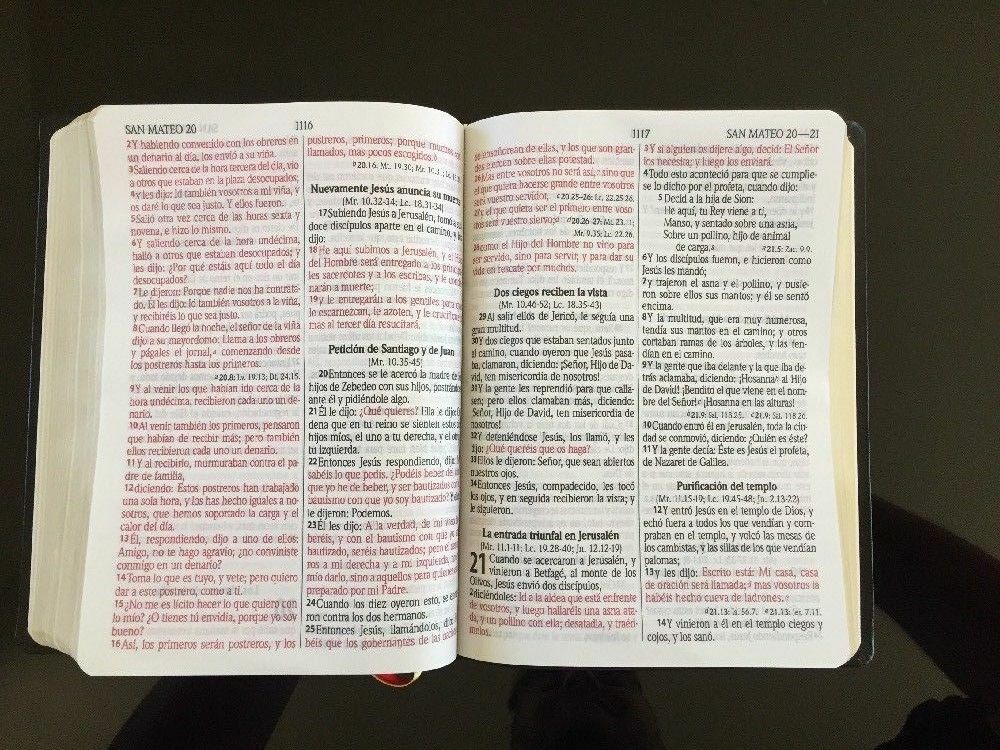 SAN MATEO 20
1116
2Y habiendo convenido con los obreros en
un denario al día, los envió a su viña.
3Saliendo cerca de la hora tercera del día, vio
a otros que estaban en la plaza desocupados;
4y les dijo: Id también vosotros a mi viña, y
os daré lo que sea justo. Y ellos fueron.
5Salió otra vez cerca de las horas sexta y
novena, e hizo lo mismo.
6Y saliendo cerca de la hora undécima,
halló a otros que estaban desocupados; y
les dijo: ¿Por qué estáis aquí todo el día
desocupados?
7Le dijeron: Porque nadie nos ha contrata-
do. Él les dijo: Id también vosotros a la viña,
y recibiréis lo que sea justo.
8Cuando llegó la noche, el señor de la viña
dijo a su mayordomo: Llama a los obreros
y págales el jornal, comenzando desde
los postreros hasta los primeros.
20.8: Lv. 19.13; Dt. 24.15.
9Y al venir los que habían ido cerca de la
hora undécima, recibieron cada uno un de-
nario.
10Al venir también los primeros, pensaron
que habían de recibir más; pero también
ellos recibieron cada uno un denario.
11Y al recibirlo, murmuraban contra el pa-
dre de familia,
12diciendo: Estos postreros han trabajado
una sola hora, y los has hecho iguales a no-
sotros, que hemos soportado la carga y el
calor del día.
13Él, respondiendo, dijo a uno de ellos:
Amigo, no te hago agravio; ¿no conviniste
conmigo en un denario?
14Toma lo que es tuyo, y vete; pero quiero
dar a este postrero, como a ti.
15¿No me es lícito hacer lo que quiero con
lo mío? ¿O tienes tú envidia, porque yo soy
bueno?
16Así, los primeros serán postreros, y los
postreros, primeros; porque muchos son
llamados, mas pocos escogidos.
20.16: Mt. 19.30; Mr. 10.31; Lc. 13.30.
Nuevamente Jesús anuncia su muerte
(Mr. 10.32-34; Lc. 18.31-34)
17Subiendo Jesús a Jerusalén, tomó a sus
doce discípulos aparte en el camino, y les
dijo:
18He aquí subimos a Jerusalén, y el Hijo
del Hombre será entregado a los princi
les sacerdotes y a los escribas, y le con
narán a muerte;
19y le entregarán a los gentiles para que
le escarnezcan, le azoten, y le crucifiquen;
mas al tercer día resucitará.
Petición de Santiago y de Juan
(Mr. 10.35-45)
20Entonces se le acercó la madre de los
hijos de Zebedeo con sus hijos, postrándose
ante él y pidiéndole algo.
21Él le dijo: ¿Qué quieres? Ella le dijo: Or
dena que en tu reino se sienten estos dos
hijos míos, el uno a tu derecha, y el otro a
tu izquierda.
22Entonces Jesús respondiendo, dijo: No
sabéis lo que pedís. ¿Podéis beber del vaso
que yo he de beber, y ser bautizados con el
bautismo con que yo soy bautizado? Y ellos
le dijeron: Podemos.
23Él les dijo: A la verdad, de mi vaso be
beréis, y con el bautismo con que yo soy
bautizado, seréis bautizados; pero el senta
ros a mi derecha y a mi izquierda, no es
mío darlo, sino a aquellos para quienes está
preparado por mi Padre.
24Cuando los diez oyeron esto, se enoja
ron contra los dos hermanos.
25Entonces Jesús, llamándolos, dijo: Sa
béis que los gobernantes de las naciones
1117
SAN MATEO 20—21
se enseñorean de ellas, y los que son gran-
des ejercen sobre ellas potestad.
26Mas entre vosotros no será así, sino que
el que quiera hacerse grande entre vosotros
será vuestro servidor, 20.25-26: Lc. 22.25-26.
27y el que quiera ser el primero entre voso
tros será vuestro siervo; 20.26-27: Mt. 23.11;
Mr. 9.35; Lc. 22.26.
28como el Hijo del Hombre no vino para
ser servido, sino para servir, y para dar su
vida en rescate por muchos.
Dos ciegos reciben la vista
(Mr. 10.46-52; Lc. 18.35-43)
29Al salir ellos de Jericó, le seguía una
gran multitud.
30Y dos ciegos que estaban sentados junto
al camino, cuando oyeron que Jesús pasa-
ba, clamaron, diciendo: ¡Señor, Hijo de Da-
vid, ten misericordia de nosotros!
31Y la gente les reprendió para que calla-
sen; pero ellos clamaban más, diciendo:
¡Señor, Hijo de David, ten misericordia de
nosotros!
32Y deteniéndose Jesús, los llamó, y les
dijo: ¿Qué queréis que os haga?
33Ellos le dijeron: Señor, que sean abiertos
nuestros ojos.
34Entonces Jesús, compadecido, les tocó
los ojos, y en seguida recibieron la vista; y
le siguieron.
La entrada triunfal en Jerusalén
(Mr. 11.1-11; Lc. 19.28-40; Jn. 12.12-19)
21 Cuando se acercaron a Jerusalén, y
vinieron a Betfagé, al monte de los
Olivos, Jesús envió dos discípulos,
2diciéndoles: Id a la aldea que está enfrente
de vosotros, y luego hallaréis una asna ata-
da, y un pollino con ella; desatadla, y traéd-
melos.
3Y si alguien os dijere algo, decid: El Señor
los necesita; y luego los enviará.
4Todo esto aconteció para que se cumplie-
se lo dicho por el profeta, cuando dijo:
5 Decid a la hija de Sion:
He aquí, tu Rey viene a ti,
Manso, y sentado sobre una asna,
Sobre un pollino, hijo de animal
de carga. 21.5: Zac. 9.9.
6Y los discípulos fueron, e hicieron como
Jesús les mandó;
7y trajeron el asna y el pollino, y pusie-
ron sobre ellos sus mantos; y él se sentó
encima.
8Y la multitud, que era muy numerosa,
tendía sus mantos en el camino; y otros
cortaban ramas de los árboles, y las ten-
dían en el camino.
9Y la gente que iba delante y la que iba de-
trás aclamaba, diciendo: ¡Hosanna al Hijo
de David! ¡Bendito el que viene en el nom-
bre del Señor! ¡Hosanna en las alturas!
21.9: Sal. 118.25. 21.9: Sal. 118.26.
10Cuando entró él en Jerusalén, toda la ciu-
dad se conmovió, diciendo: ¿Quién es éste?
11Y la gente decía: Éste es Jesús el profeta,
de Nazaret de Galilea.
Purificación del templo
(Mr. 11.15-19; Lc. 19.45-48; Jn. 2.13-22)
12Y entró Jesús en el templo de Dios, y
echó fuera a todos los que vendían y com-
praban en el templo, y volcó las mesas de
los cambistas, y las sillas de los que vendían
palomas;
13y les dijo: Escrito está: Mi casa, casa
de oración será llamada; mas vosotros la
habéis hecho cueva de ladrones.
21.13: Is. 56.7. 21.13: Jer. 7.11.
14Y vinieron a él en el templo ciegos y
cojos, y los sanó.